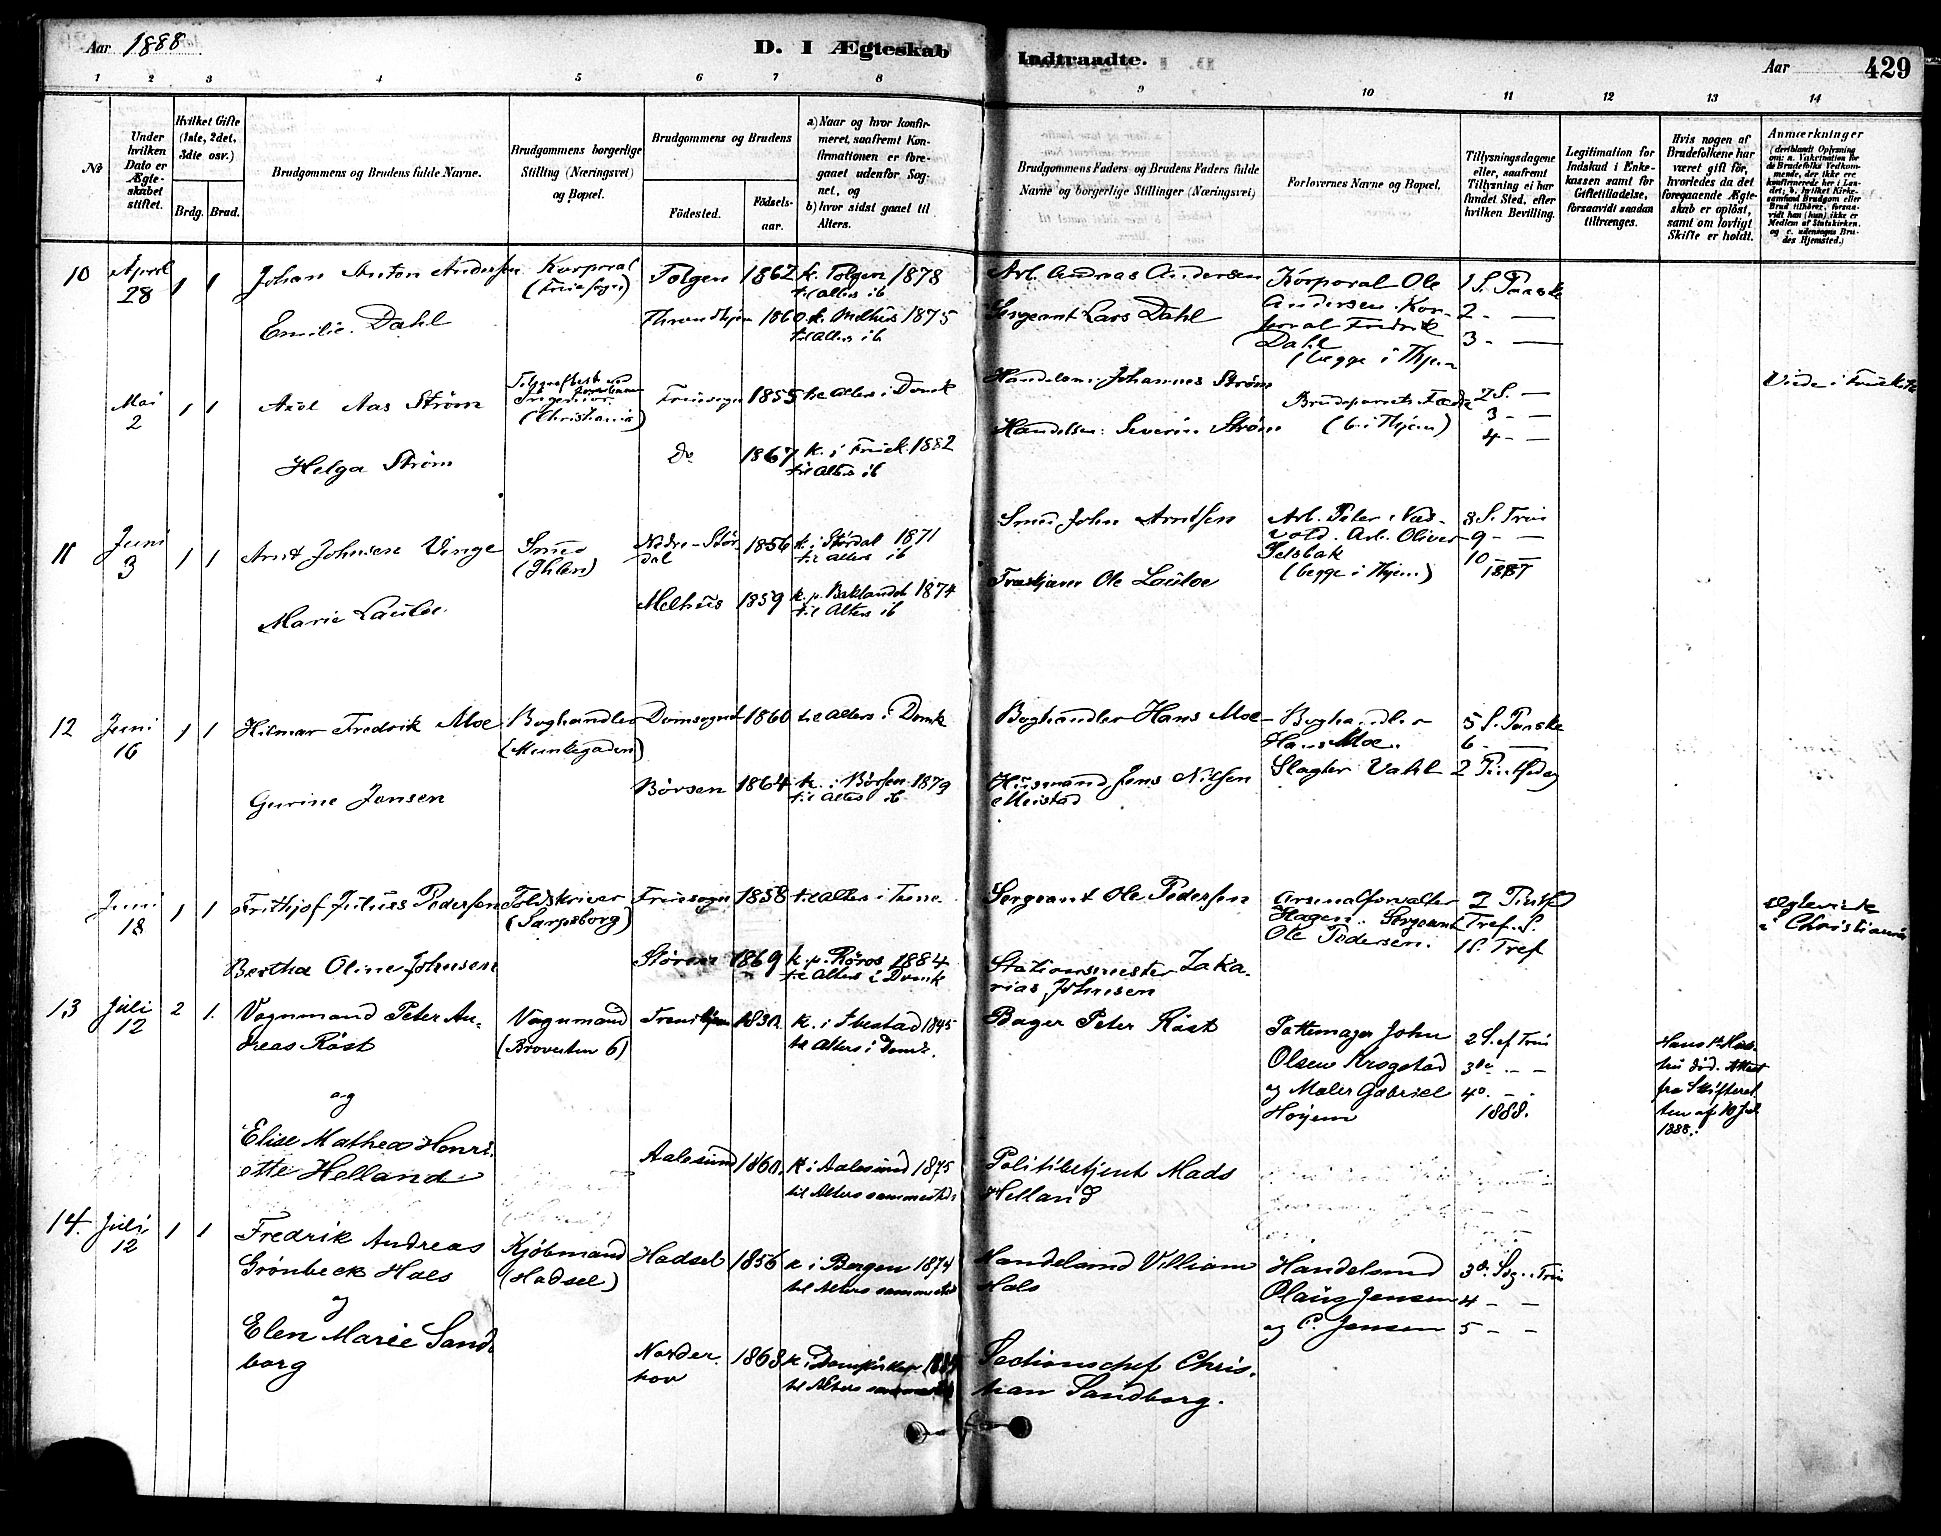 Aar 1888
D. I Ægteskab Indtraadte.
Aar 429
1 2 3 4 5 6 7 8 9 10 11 12 13 14
No
Under hvilken Dato er Ægteskabet stiftet.
Hvilket Gifte (1ste, 2det, 3die osv.)
Brdg. Brud.
Brudgommens og Brudens fulde Navne.
Brudgommens borgerlige Stilling (Næringsvei) og Bopæl.
Brudgommens og Brudens
Fødested.
Fødselsaar.
a) Naar og hvor konfirmeret, saafremt Konfirmationen er foregaaet udenfor Sognet, og
b) hvor sidst gaaet til Alters.
Brudgommens Faders og Brudens Faders fulde Navne og borgerlige Stillinger (Næringsvei)
Forlovernes Navne og Bopæl.
Tillysningsdagene eller, saafremt Tillysning ei har fundet Sted, efter hvilken Bevilling.
Legitimation for Indskud i Enkekassen samt for Giftetilladelse, forsaavidt saadan tiltrænges.
Hvis nogen af Brudefolkene har været gift før, hvorledes da det foregaaende Ægteskab er opløst, samt om lovligt Skifte er holdt.
Anmærkninger (deriblandt Oplysning om: a. Vakcination for de Brudefolks Vedkommende, der ikke ere konfirmerede her i Landet; b. hvilket Kirkesamfund Brudgom eller Brud tilhører, forsaavidt han (hun) ikke er Medlem af Statskirken, og c. udensogns Brudes Hjemsted.)
10 April 28 1 1 Johan Anton Andersen Korporal (Fruesogn) Tolgen 1862 k. Tolgen 1878 til Alters ib Arb. Andreas Andersen Korporal Ole Andersen. Korporal Fredrik Dahl (begge i Thjem 1 S. Paaske
2 - —
3 - —
Emilie Dahl Throndhjem 1860 k. Melhus 1875 til Alters ib Sergeant Lars Dahl
Mai 2 1 1 Axel Aas Strøm Ingeniør (Christiania) Fruesogn 1855 til Alters i Domk Handelsm. Johannes Strøm Brudeparrets Fædre (b. i Thjem) 2 S. —
3 - —
4 - —
Viede i Fruek
Helga Strøm Do 1867 k. i Fruek 1882 til Alters ib Handelsm: Severin Strøm
11 Juni 3 1 1 Arnt Johnsen Vinge Smed (Ihlen) Nedre-Størdal 1856 k. i Størdal 1871 til Alters ib Smed John Arntsen Arb. Peter Arb. Oliver Selsbak (begge i Thjem) 8 S. Trin
9 - —
10 - —
1887
Marie Lauloe Melhus 1859 k. p. Baklandet 1874 til Alters ib Ole Lauloe
12 Juni 16 1 1 Hilmar Fredrik Moe Boghandler (Munkegaden) Domsognet 1860 til Alters i Domk Boghandler Hans Moe Boghandler Hans Moe. Slagter Vahl 5 S. Paaske
6 - —
2 Pintsedag
Gurine Jensen Børsen 1864 k. i Børsen 1879 til Alters ib Husmand Jens Nilsen Meistad
Juni 18 1 1 Frithjof Julius Pedersen Toldskriver (Sarpsborg) Fruesogn 1858 til Alters i Frue Sergeant Ole Pedersen Arsenalforvalter Hagen. Sergeant Ole Pedersen. 2 Pintsd
Tref. S.
1 S. Tref
ægteviede i Christiania
Bertha Oline Johnsen Støren 1869 k. p. Røros 1884 til Alters i Domk Stationsmester Zakarias Johnsen
13 Juli 12 2 1. Vognmand Peter Andreas Røst Vognmand (Brovesten 6) 1830 k. i Ibestad 1845 til Alters i Domk. Bager Peter Røst Pottemager John Olsen Krogstad og Maler Gabriel Høyem 2 S. ef Trin
3de - —
4o - —
1888.
Hans 1ste Hustru død. Attest fra Skifteretten af 10 Jul. 1888.
og
Elise Mathea Henriette Helland Aalesund 1860. k i Aalesund 1875 til Alters sammesteds Politibetjent Mads Helland
14. Juli 12 1 1 Fredrik Andreas Grønbeck Hals Kjøbmand (Hadsel) Hadsel 1856 k i Bergen 1874 til Alters sammesteds Handelsmd Villiam Hals Handelsmd Olaus Jensen og C. Jensen 3de Sdg. Trin
4 - —
5 - —
og
Elen Marie Sandborg Norderhov 1863 k i Domkirken til Alters Sectionschef Christian Sandborg.